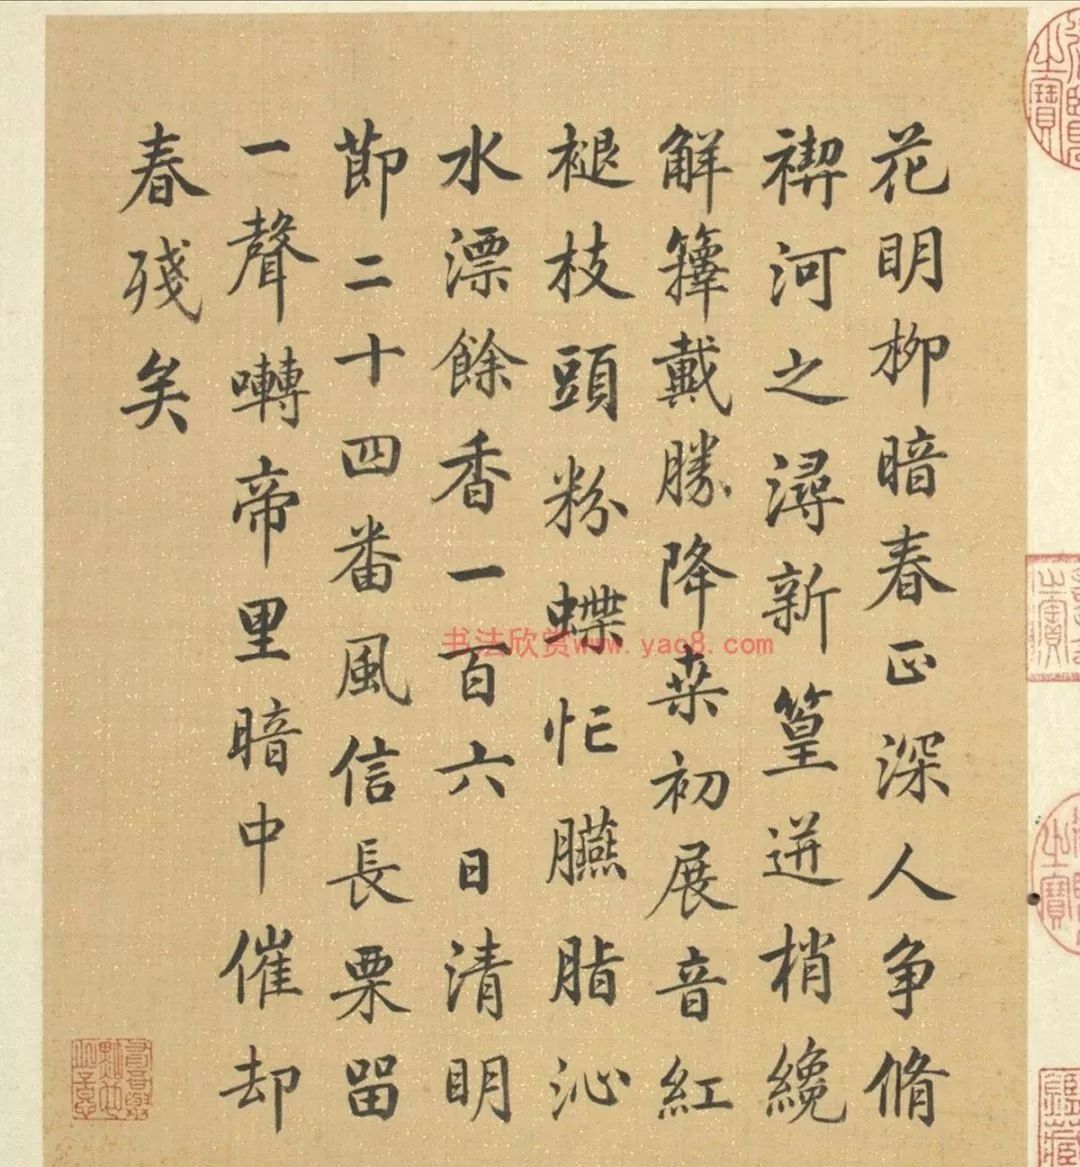 花明柳暗春正深人争脩
禊河之潯新篁迸梢纔
解籜戴勝降桒初展音紅
褪枝頭粉蝶忙臙脂沁
水漂餘香一百六日清明
節二十四番風信長栗留
一聲囀帝里暗中催却
春殘矣
书法欣赏www.yac8.com
之寶